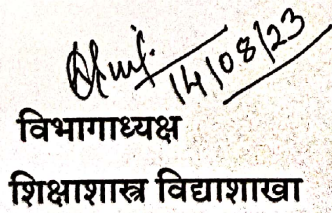 14/08/23
विभागाध्यक्ष
शिक्षाशास्त्र विद्याशाखा